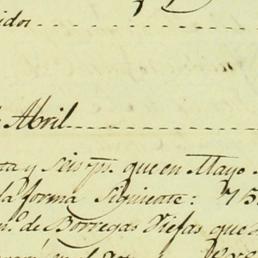 idos
Abril
ta y seis ps. que en Mayo
la forma siguiente: 75
n. de Borregas Viejas que